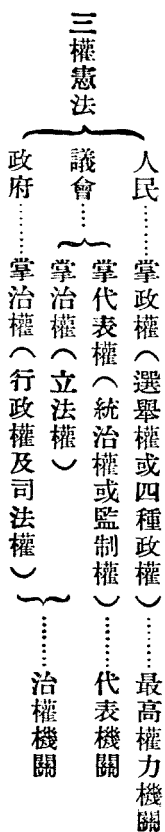 三權憲法
人民……掌政權(選舉權或四種政權)……最高權力機關
議會……
掌代表權(統治權或監制權)……代表機關
掌治權(立法權)
政府……掌治權(行政權及司法權)
……治權機關